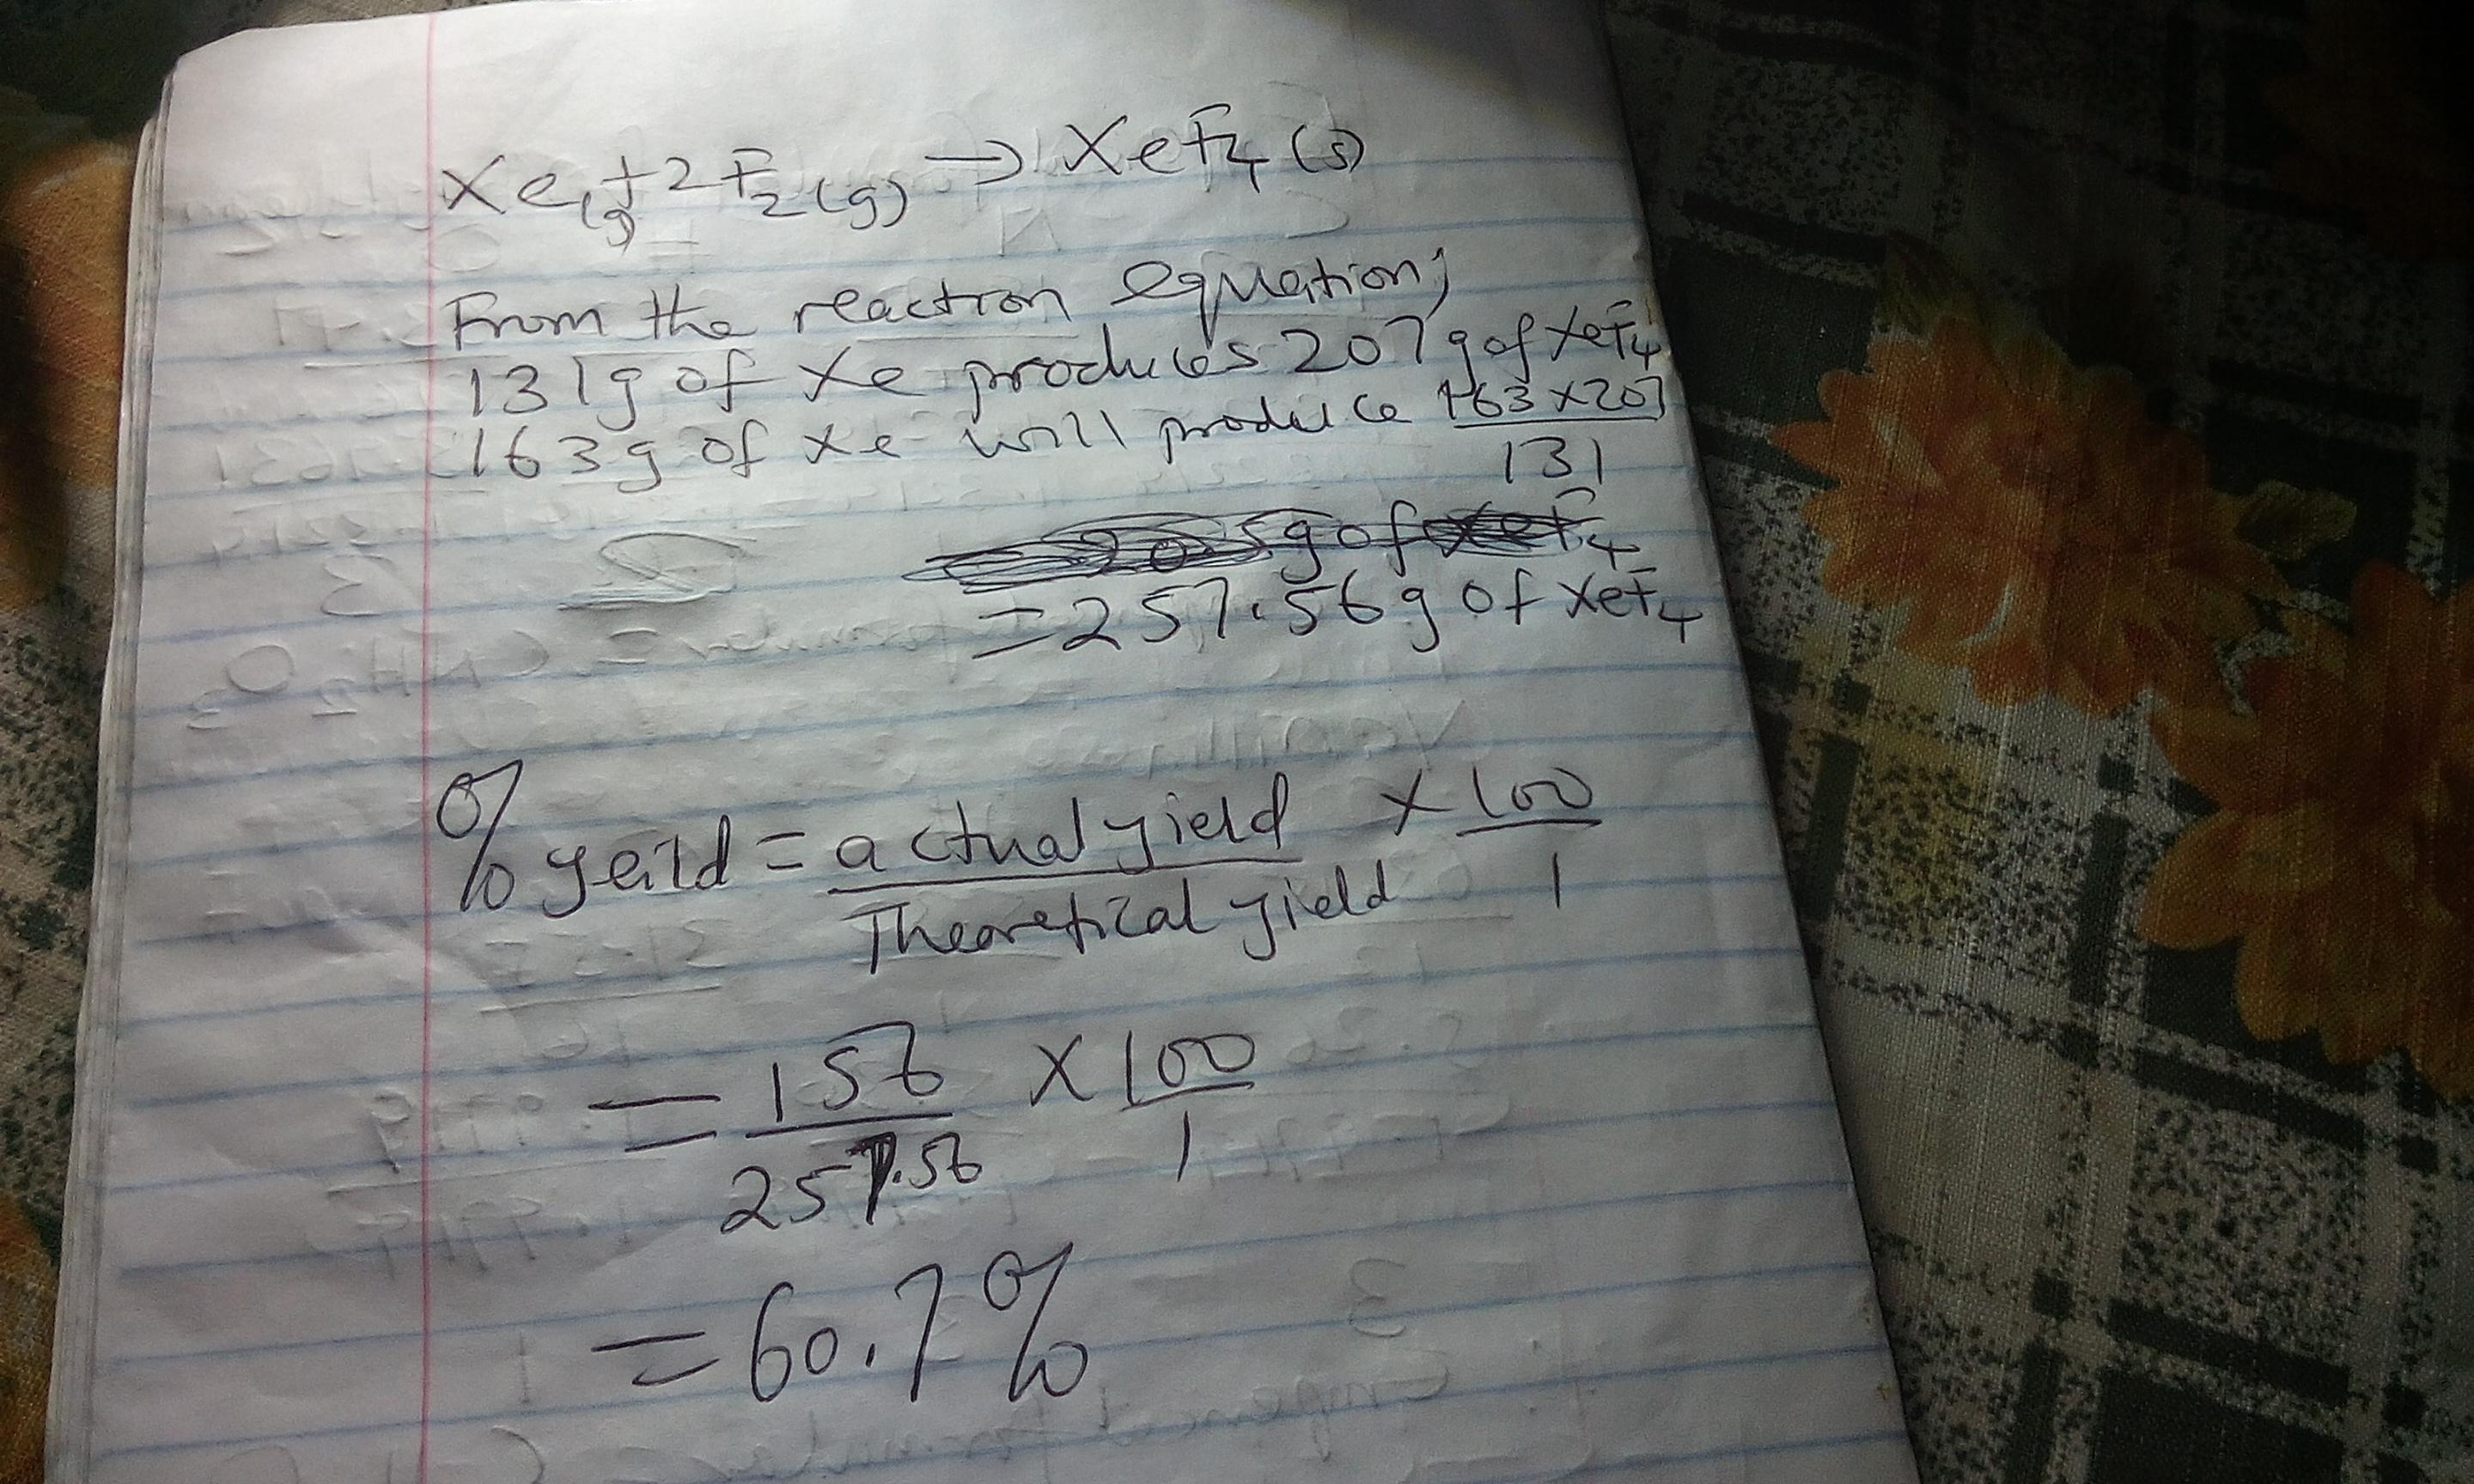 Xe(g) + 2F2(g) → XeF4(s)
From the reaction equation;
131g of Xe produces 207g of XeF4
163g of Xe will produce 163 x 207
131
= 257.56g of XeF4
% yeild = actual yield x 100
Theoretical yield 1
= 156 x 100
257.56 1
= 60.7%